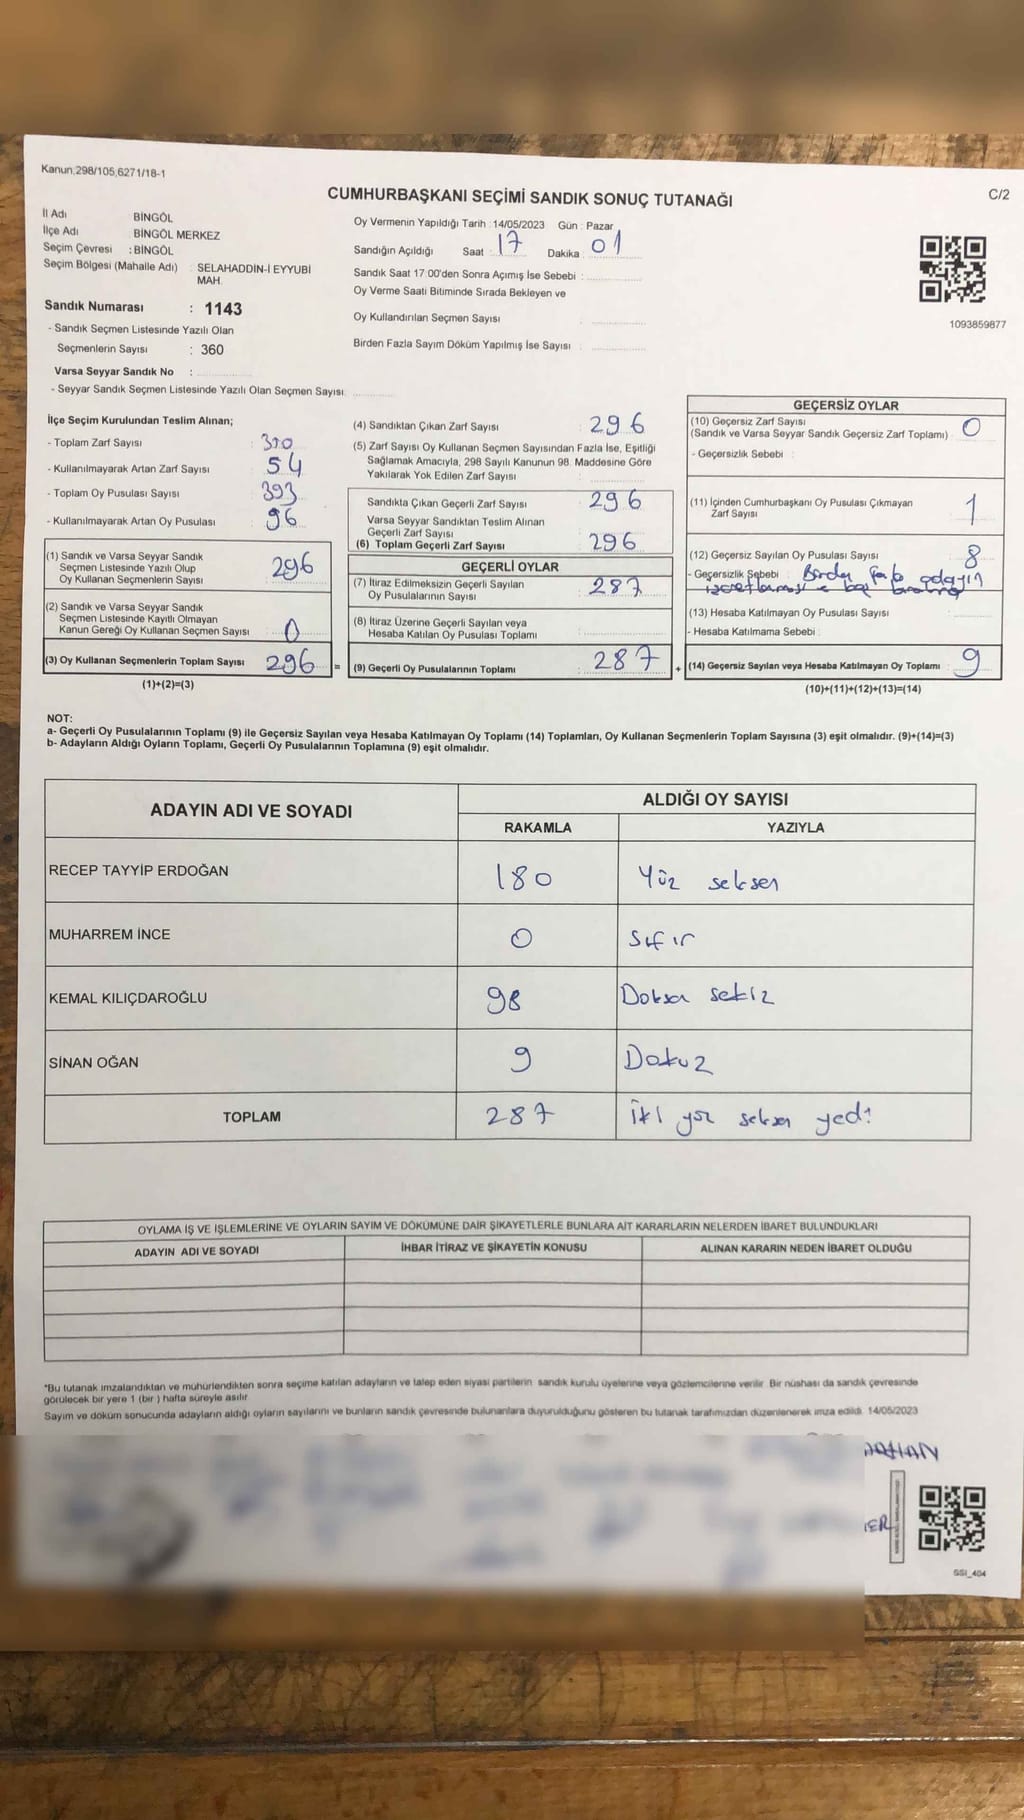 Kanun;298/105,6271/18-1
CUMHURBAŞKANI SEÇİMİ SANDIK SONUÇ TUTANAĞI
C/2
İl Adı BİNGÖL
İlçe Adı BİNGÖL MERKEZ
Seçim Çevresi : BİNGÖL
Seçim Bölgesi (Mahalle Adı) : SELAHADDİN-İ EYYUBİ
MAH.
Sandık Numarası : 1143
- Sandık Seçmen Listesinde Yazılı Olan
Seçmenlerin Sayısı : 360
Varsa Seyyar Sandık No :
- Seyyar Sandık Seçmen Listesinde Yazılı Olan Seçmen Sayısı:
Oy Vermenin Yapıldığı Tarih : 14/05/2023 Gün : Pazar
Sandığın Açıldığı Saat : 17 Dakika : 01
Sandık Saat 17:00'den Sonra Açımış İse Sebebi :
Oy Verme Saati Bitiminde Sırada Bekleyen ve
Oy Kullandırılan Seçmen Sayısı :
Birden Fazla Sayım Döküm Yapılmış İse Sayısı :
1093859877
İlçe Seçim Kurulundan Teslim Alınan;
- Toplam Zarf Sayısı
- Kullanılmayarak Artan Zarf Sayısı : 54
- Toplam Oy Pusulası Sayısı : 393
- Kullanılmayarak Artan Oy Pusulası : 96
(1) Sandık ve Varsa Seyyar Sandık
Seçmen Listesinde Yazılı Olup
Oy Kullanan Seçmenlerin Sayısı 296
(2) Sandık ve Varsa Seyyar Sandık
Seçmen Listesinde Kayıtlı Olmayan
Kanun Gereği Oy Kullanan Seçmen Sayısı : 0
(3) Oy Kullanan Seçmenlerin Toplam Sayısı 296 =
(1)+(2)=(3)
(4) Sandıktan Çıkan Zarf Sayısı : 296
(5) Zarf Sayısı Oy Kullanan Seçmen Sayısından Fazla İse, Eşitliği
Sağlamak Amacıyla, 298 Sayılı Kanunun 98. Maddesine Göre
Yakılarak Yok Edilen Zarf Sayısı :
Sandıkta Çıkan Geçerli Zarf Sayısı : 296
Varsa Seyyar Sandıktan Teslim Alınan
Geçerli Zarf Sayısı
(6) Toplam Geçerli Zarf Sayısı : 296
GEÇERLİ OYLAR
(7) İtiraz Edilmeksizin Geçerli Sayılan
Oy Pusulalarının Sayısı : 287
(8) İtiraz Üzerine Geçerli Sayılan veya
Hesaba Katılan Oy Pusulası Toplamı :
(9) Geçerli Oy Pusulalarının Toplamı : 287 +
GEÇERSİZ OYLAR
(10) Geçersiz Zarf Sayısı
(Sandık ve Varsa Seyyar Sandık Geçersiz Zarf Toplamı) : 0
- Geçersizlik Sebebi :
(11) İçinden Cumhurbaşkanı Oy Pusulası Çıkmayan
Zarf Sayısı : 1
(12) Geçersiz Sayılan Oy Pusulası Sayısı : 8
- Geçersizlik Sebebi :
(13) Hesaba Katılmayan Oy Pusulası Sayısı :
- Hesaba Katılmama Sebebi :
(14) Geçersiz Sayılan veya Hesaba Katılmayan Oy Toplamı : 9
(10)+(11)+(12)+(13)=(14)
NOT:
a- Geçerli Oy Pusulalarının Toplamı (9) ile Geçersiz Sayılan veya Hesaba Katılmayan Oy Toplamı (14) Toplamları, Oy Kullanan Seçmenlerin Toplam Sayısına (3) eşit olmalıdır. (9)+(14)=(3)
b- Adayların Aldığı Oyların Toplamı, Geçerli Oy Pusulalarının Toplamına (9) eşit olmalıdır.
ADAYIN ADI VE SOYADI ALDIĞI OY SAYISI
RAKAMLA YAZIYLA
RECEP TAYYİP ERDOĞAN 180 Yüz seksen
MUHARREM İNCE 0 Sıfır
KEMAL KILIÇDAROĞLU 98 Doksan sekiz
SİNAN OĞAN 9 Dokuz
TOPLAM 287 İki yüz seksen yedi
OYLAMA İŞ VE İŞLEMLERİNE VE OYLARIN SAYIM VE DÖKÜMÜNE DAİR ŞİKAYETLERLE BUNLARA AİT KARARLARIN NELERDEN İBARET BULUNDUKLARI
ADAYIN ADI VE SOYADI İHBAR İTİRAZ VE ŞİKAYETİN KONUSU ALINAN KARARIN NEDEN İBARET OLDUĞU
*Bu tutanak imzalandıktan ve mühürlendikten sonra seçime katılan adayların ve talep eden siyasi partilerin sandık kurulu üyelerine veya gözlemcilerine verilir. Bir nüshası da sandık çevresinde
görülecek bir yere 1 (bir ) hafta süreyle asılır.
Sayım ve döküm sonucunda adayların aldığı oyların sayılarını ve bunların sandık çevresinde bulunanlara duyurulduğunu gösteren bu tutanak tarafımızdan düzenlenerek imza edildi. 14/05/2023
SSI_404